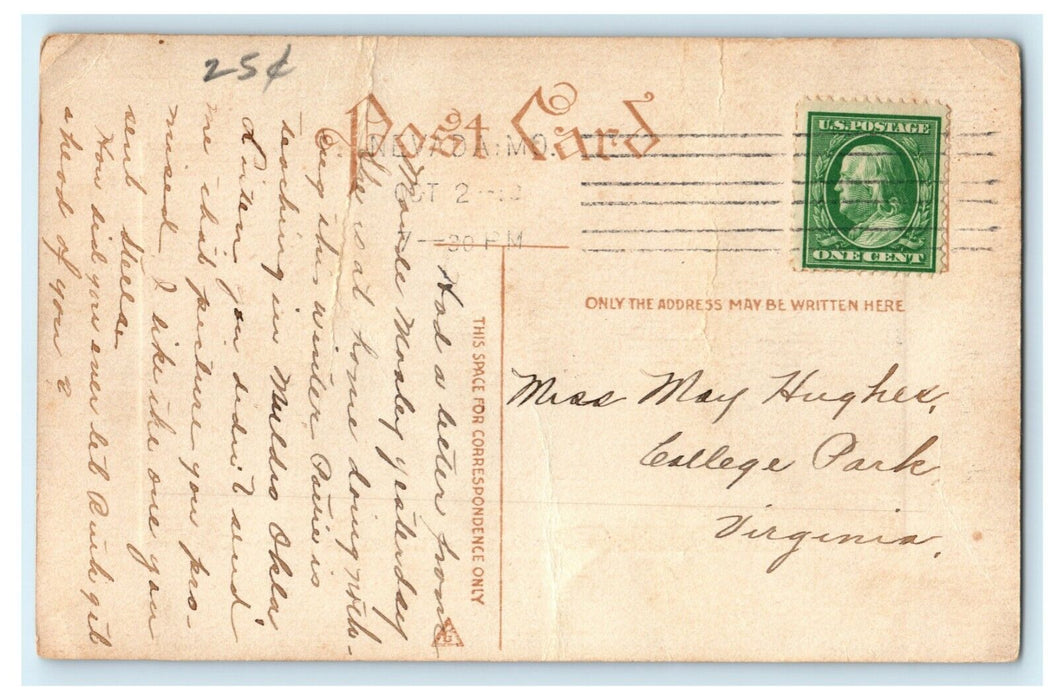 25¢
Post Card
NEVADA MO.
OCT 2
7-30 PM
U.S. POSTAGE
ONE CENT
ONLY THE ADDRESS MAY BE WRITTEN HERE
Miss May Hughes,
College Park
Virginia.
THIS SPACE FOR CORRESPONDENCE ONLY
Had a letter from
Maude Mosley yesterday
She is at home doing noth-
ing this winter. Carrie is
teaching in Muldro Okla
Listen you didn't send
me that picture you pro-
mised. I like the one you
sent Steele.
How did you ever let Ruth get
ahead of you?